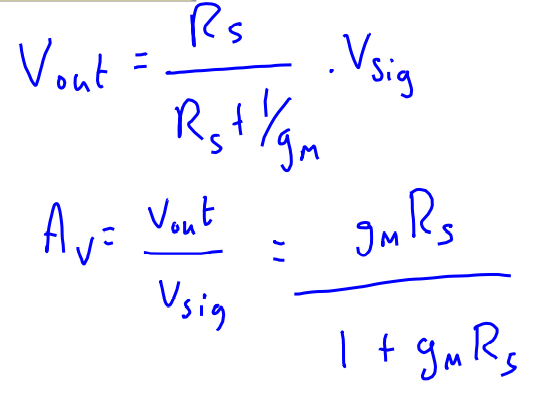 Vout = Rs / (Rs + 1/gm) . Vsig
Av = Vout / Vsig = gmRs / (1 + gmRs)